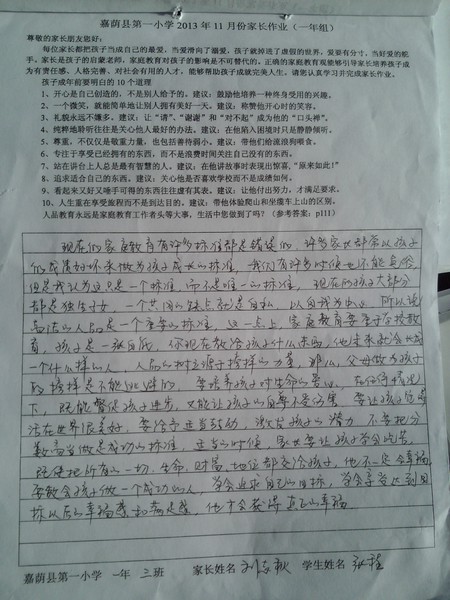 嘉荫县第一小学 2013 年 11 月份家长作业（一年组）
尊敬的家长朋友您好：
每位家长都把孩子当成自己的最爱，当爱滑向了溺爱，孩子就掉进了虚假的世界，爱要有分寸，当好爱的舵
手。家长是孩子的启蒙老师，家庭教育对孩子的影响是不可替代的。正确的家庭教育观能够引导家长培养孩子成
为有责任感、人格完善、对社会有用的人才，能够帮助孩子成就完美人生。请您认真学习并完成家长作业。
孩子成年前要明白的 10 个道理
1、开心是自己创造的，不是别人给予的。建议：鼓励他培养一种终身受用的兴趣。
2、一个微笑，就能简单地让别人拥有美好一天。建议：称赞他开心时的笑容。
3、礼貌永远不嫌多。建议：让“请”、“谢谢”和“对不起”成为他的“口头禅”。
4、纯粹地聆听往往是关心他人最好的办法。建议：在他陷入困境时只是静静倾听。
5、尊重，不仅仅是敬重力量，也包括善待弱小。建议：带他们给流浪狗喂食。
6、专注于享受已经拥有的东西，而不是浪费时间关注自己没有的东西。
7、站在讲台上人总是最有智慧的人。建议：在他讲故事时表现出惊喜，“原来如此！”
8、追求适合自己的东西。建议：关心他是否喜欢学校而不是成绩如何。
9、看起来又好又唾手可得的东西往往虚有其表。建议：让他付出努力，才能满足要求。
10、人生重在享受旅程而不是到达目的。建议：带他体验爬山和坐缆车上山的区别。
人品教育永远是家庭教育工作者头等大事，生活中您做到了吗？（参考答案：p111）
现在的家庭教育有许多标准都是错误的，许多家长都常以孩子
的成绩好坏来做为孩子成长的标准，我们有许多时候也不能免俗，
但是我认为这只是一个标准，而不是唯一的标准，现在的孩子大部分
都是独生子女，一个共同的缺点就是自私，以自我为中心，所以说
高尚的人品是一个重要的标准，这一点上，家庭教育要重于学校教
育，孩子是一张白纸，你现在教给孩子什么东西，他未来就会成为
一个什么样的人，人品的树立源于榜样的力量，那么，父母做为孩子
的榜样是不能
要培养孩子对生命的
在任何情况
下，既能督促孩子进步，又能让孩子的自尊不受伤害，要让孩子觉得
活在世界很美好，要给予适当鼓励，激发孩子的潜力，不要把分
数高当做是成功的标准，适当的时候，家长要让孩子学会吃苦，
既使把所有的一切，生命，财富，地位都交给孩子，他不一定会幸福
要教会孩子做一个成功的人，学会追求自己的目标，学会享受达到目
标以后的幸福感和满足感，他才会获得真正的幸福
嘉荫县第一小学 一年 三班 家长姓名 刘志秋 学生姓名